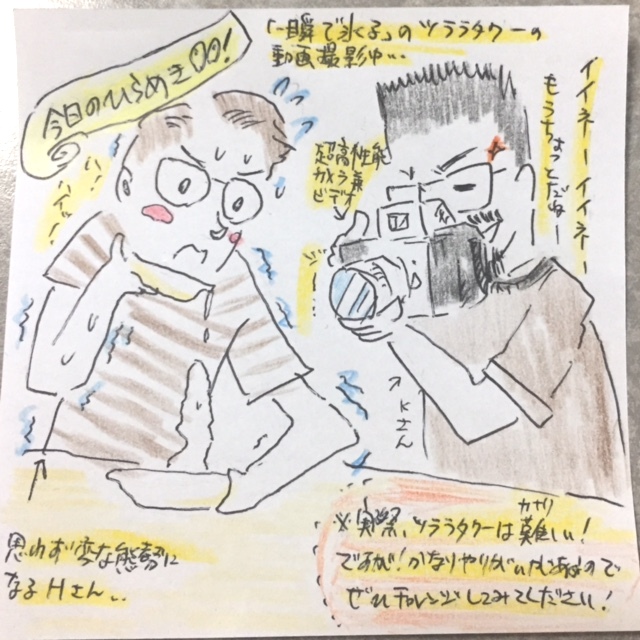 今日のひらめき〇〇!
「一瞬で氷くる」のツララタワーの
動画撮影中...
イイネーイイネー
もうちょっとだねー
超高性能
カメラ兼
ビデオ
ハ、ハイ...
ジー...
←Kさん
思わず変な態勢に
なるHさん..
※実際、ツララタワーは難しい!
カナリ
ですが!かなりやりがいがあるので
ぜひチャレンジしてみてください!